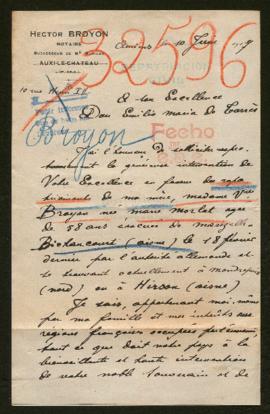 HECTOR BROYON
NOTAIRE
SUCCESSEUR DE Mᵉ
AUXI-LE-CHATEAU
32596
Amiens le 10 Juin
10 rue
A son Excellence
Don Emilio Maria de Torrès
Broyon
Fecho
J'ai l'honneur de solliciter respec-
tueusement la généreuse intervention de
Votre Excellence en faveur du rapa-
triement de ma mère, madame Vve
Broyon née marie mortal agée
de 58 ans évacuée de
Biohancourt (aisne) le 18 février
dernier par l'autorité allemande et
se trouvant actuellement à Mondrepuis
(nord) ou à Hirson (aisne)
Je sais, appartenant moi-même
par ma famille et mes intérêts aux
régions françaises occupées
tout ce que doit notre pays à la
bienveillante et haute intervention
de votre noble souverain et de